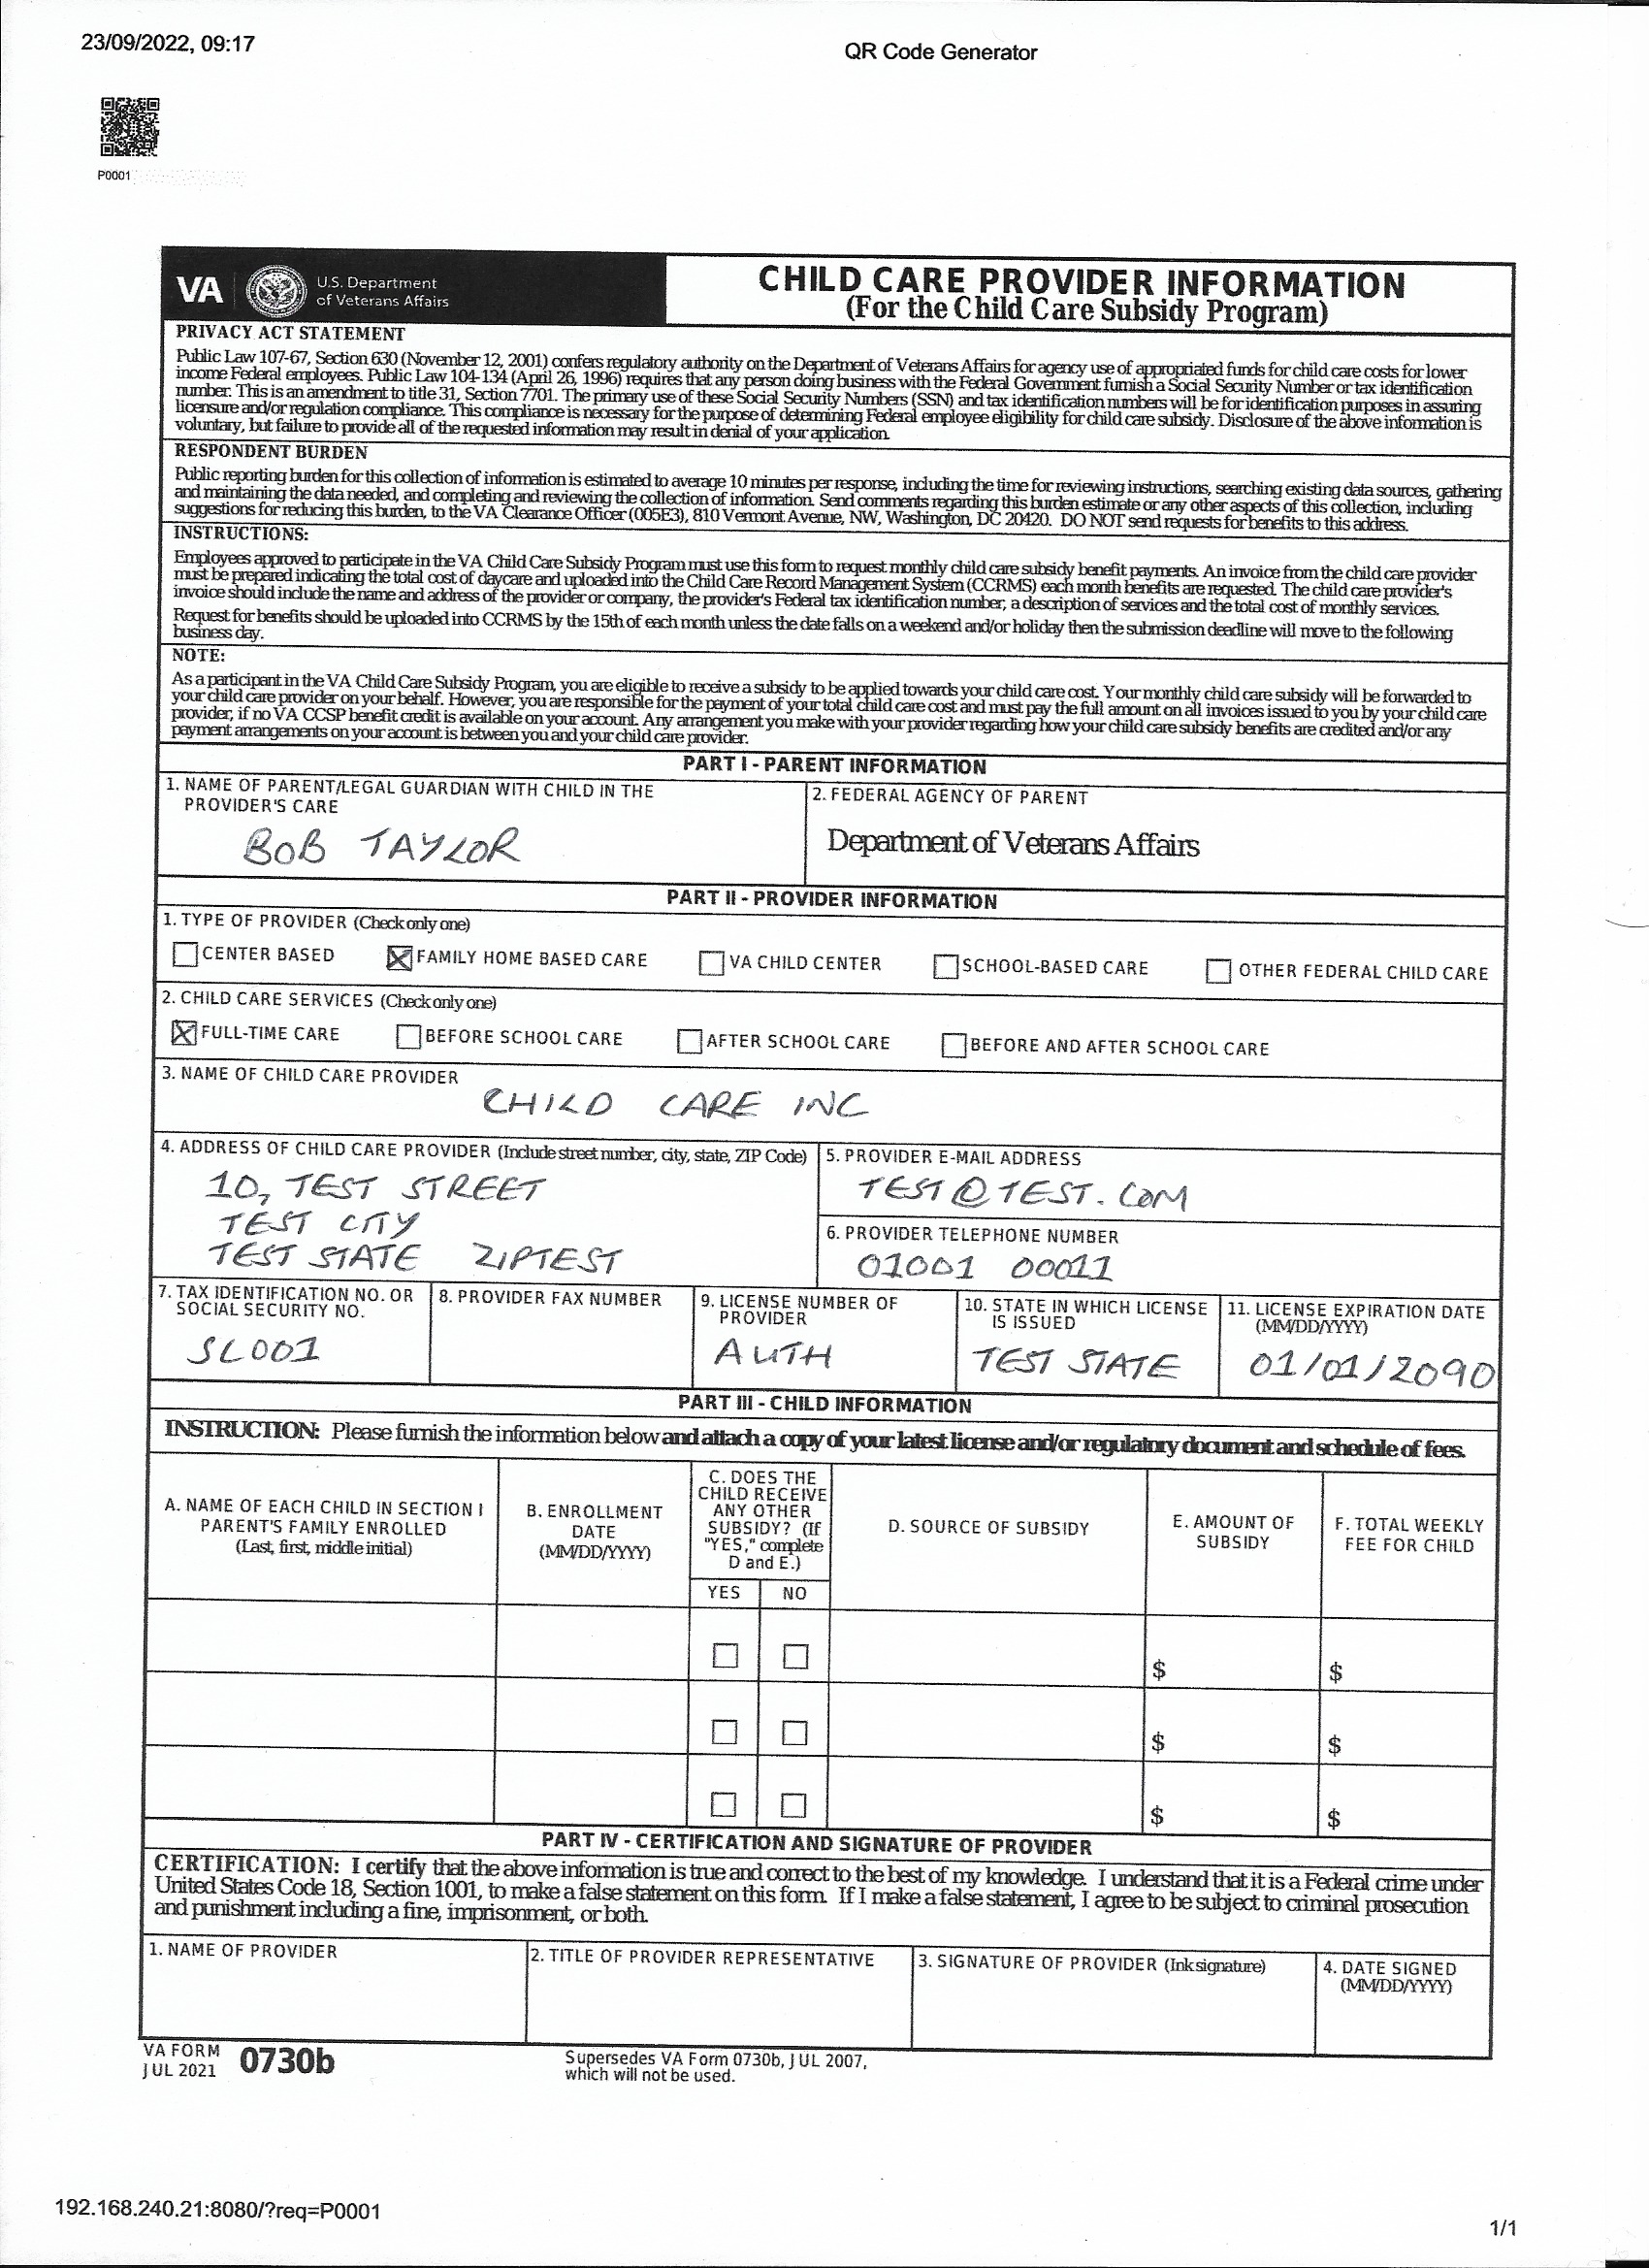 23/09/2022, 09:17
QR Code Generator
P0001
VA
U.S. Department
of Veterans Affairs
CHILD CARE PROVIDER INFORMATION
(For the Child Care Subsidy Program)
PRIVACY ACT STATEMENT
Public Law 107-67, Section 630 (November 12, 2001) confers regulatory authority on the Department of Veterans Affairs for agency use of appropriated funds for child care costs for lower
income Federal employees. Public Law 104-134 (April 26, 1996) requires that any person doing business with the Federal Government furnish a Social Security Number or tax identification
number. This is an amendment to title 31, Section 7701. The primary use of these Social Security Numbers (SSN) and tax identification numbers will be for identification purposes in assuring
licensure and/or regulation compliance. This compliance is necessary for the purpose of determining Federal employee eligibility for child care subsidy. Disclosure of the above information is
voluntary, but failure to provide all of the requested information may result in denial of your application.
RESPONDENT BURDEN
Public reporting burden for this collection of information is estimated to average 10 minutes per response, including the time for reviewing instructions, searching existing data sources, gathering
and maintaining the data needed, and completing and reviewing the collection of information. Send comments regarding this burden estimate or any other aspects of this collection, including
suggestions for reducing this burden, to the VA Clearance Officer (005E3), 810 Vermont Avenue, NW, Washington, DC 20420. DO NOT send requests for benefits to this address.
INSTRUCTIONS:
Employees approved to participate in the VA Child Care Subsidy Program must use this form to request monthly child care subsidy benefit payments. An invoice from the child care provider
must be prepared indicating the total cost of daycare and uploaded into the Child Care Record Management System (CCRMS) each month benefits are requested. The child care provider's
invoice should include the name and address of the provider or company, the provider's Federal tax identification number, a description of services and the total cost of monthly services.
Request for benefits should be uploaded into CCRMS by the 15th of each month unless the date falls on a weekend and/or holiday then the submission deadline will move to the following
business day.
NOTE:
As a participant in the VA Child Care Subsidy Program, you are eligible to receive a subsidy to be applied towards your child care cost. Your monthly child care subsidy will be forwarded to
your child care provider on your behalf. However, you are responsible for the payment of your total child care cost and must pay the full amount on all invoices issued to you by your child care
provider, if no VA CCSP benefit credit is available on your account. Any arrangement you make with your provider regarding how your child care subsidy benefits are credited and/or any
payment arrangements on your account is between you and your child care provider.
PART I - PARENT INFORMATION
1. NAME OF PARENT/LEGAL GUARDIAN WITH CHILD IN THE
PROVIDER'S CARE
BOB TAYLOR
2. FEDERAL AGENCY OF PARENT
Department of Veterans Affairs
PART II - PROVIDER INFORMATION
1. TYPE OF PROVIDER (Check only one)
CENTER BASED FAMILY HOME BASED CARE VA CHILD CENTER SCHOOL-BASED CARE OTHER FEDERAL CHILD CARE
2. CHILD CARE SERVICES (Check only one)
FULL-TIME CARE BEFORE SCHOOL CARE AFTER SCHOOL CARE BEFORE AND AFTER SCHOOL CARE
3. NAME OF CHILD CARE PROVIDER
CHILD CARE INC
4. ADDRESS OF CHILD CARE PROVIDER (Include street number, city, state, ZIP Code)
10, TEST STREET
TEST CITY
TEST STATE ZIPTEST
5. PROVIDER E-MAIL ADDRESS
TEST@TEST.COM
6. PROVIDER TELEPHONE NUMBER
01001 00011
7. TAX IDENTIFICATION NO. OR
SOCIAL SECURITY NO.
SL001
8. PROVIDER FAX NUMBER
9. LICENSE NUMBER OF
PROVIDER
AUTH
10. STATE IN WHICH LICENSE
IS ISSUED
TEST STATE
11. LICENSE EXPIRATION DATE
(MM/DD/YYYY)
01/01/2090
PART III - CHILD INFORMATION
INSTRUCTION: Please furnish the information below and attach a copy of your latest license and/or regulatory document and schedule of fees.
A. NAME OF EACH CHILD IN SECTION I
PARENT'S FAMILY ENROLLED
(Last, first, middle initial)
B. ENROLLMENT
DATE
(MM/DD/YYYY)
C. DOES THE
CHILD RECEIVE
ANY OTHER
SUBSIDY? (If
"YES," complete
D and E.)
YES NO
D. SOURCE OF SUBSIDY
E. AMOUNT OF
SUBSIDY
F. TOTAL WEEKLY
FEE FOR CHILD
$ $
$ $
$ $
PART IV - CERTIFICATION AND SIGNATURE OF PROVIDER
CERTIFICATION: I certify that the above information is true and correct to the best of my knowledge. I understand that it is a Federal crime under
United States Code 18, Section 1001, to make a false statement on this form. If I make a false statement, I agree to be subject to criminal prosecution
and punishment including a fine, imprisonment, or both.
1. NAME OF PROVIDER
2. TITLE OF PROVIDER REPRESENTATIVE
3. SIGNATURE OF PROVIDER (Ink signature)
4. DATE SIGNED
(MM/DD/YYYY)
VA FORM
JUL 2021
0730b
Supersedes VA Form 0730b, JUL 2007,
which will not be used.
192.168.240.21:8080/?req=P0001
1/1